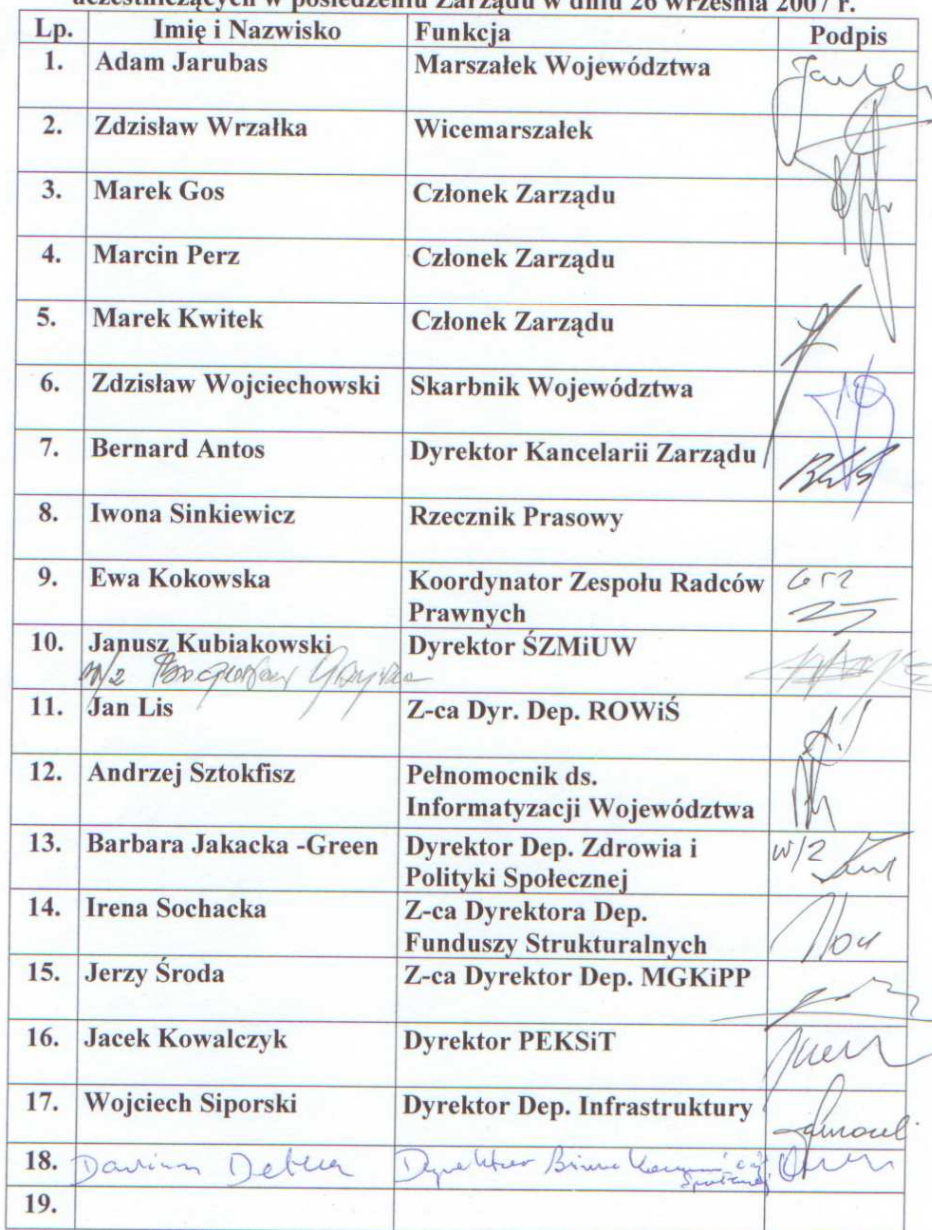 uczestniczących w posiedzeniu Zarządu w dniu 26 września 2007 r.
Lp. Imię i Nazwisko Funkcja Podpis
1. Adam Jarubas Marszałek Województwa
2. Zdzisław Wrzałka Wicemarszałek
3. Marek Gos Członek Zarządu
4. Marcin Perz Członek Zarządu
5. Marek Kwitek Członek Zarządu
6. Zdzisław Wojciechowski Skarbnik Województwa
7. Bernard Antos Dyrektor Kancelarii Zarządu
8. Iwona Sinkiewicz Rzecznik Prasowy
9. Ewa Kokowska Koordynator Zespołu Radców
Prawnych
10. Janusz Kubiakowski Dyrektor ŚZMiUW
w/z
11. Jan Lis Z-ca Dyr. Dep. ROWiŚ
12. Andrzej Sztokfisz Pełnomocnik ds.
Informatyzacji Województwa
13. Barbara Jakacka -Green Dyrektor Dep. Zdrowia i w/z
Polityki Społecznej
14. Irena Sochacka Z-ca Dyrektora Dep.
Funduszy Strukturalnych
15. Jerzy Środa Z-ca Dyrektor Dep. MGKiPP
16. Jacek Kowalczyk Dyrektor PEKSiT
17. Wojciech Siporski Dyrektor Dep. Infrastruktury
18. Dyrektor Biura
19.